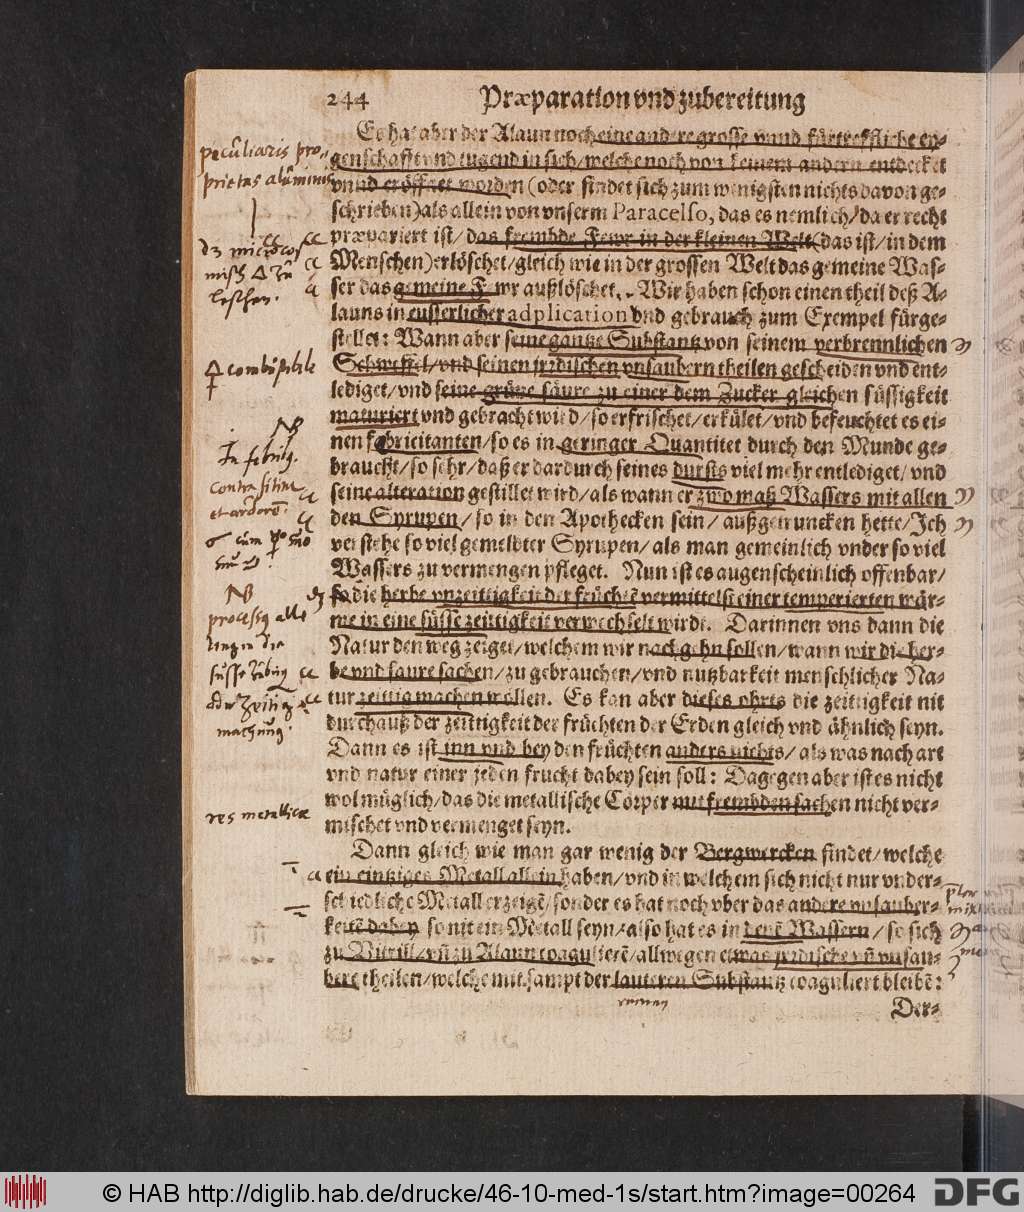 244 Præparation vnd zubereitung
Es hat aber der Alaun noch eine andere grosse vnnd fürtreffliche ey-
genschafft vnd tugend in sich/welche noch von keinem andern entdecket
vnnd eröffnet worden (oder findet sich zum wenigsten nichts davon ge-
schrieben) als allein von vnserm Paracelso, das es nemlich/da er recht
præpariert ist/ das frembde Fewr in der kleinen Welt (das ist/in dem
Menschen) erlöschet/gleich wie in der grossen Welt das gemeine Was-
ser das gemeine Fewr außlöschet. Wir haben schon einen theil deß A-
launs in eusserlicher adplication vnd gebrauch zum Exempel fürge-
stellet: Wann aber seine gantze Substantz von seinem verbrennlichen
Schweffel/vnd seinen jrrdischen vnsaubern theilen gescheiden vnd ent-
lediget/vnd seine grüne säure zu einer dem Zucker gleichen süssigkeit
maturiert vnd gebracht wird/so erfrischet/erkület/vnd befeuchtet es ei-
nen febricitanten/so es in geringer Quantitet durch den Munde ge-
braucht/so sehr/daß er dardurch seines dursts viel mehr entlediget/vnd
seine alteration gestillet wird/als wann er zwo maß Wassers mit allen
den Syrupen/so in den Apothecken sein/außgetruncken hette/Ich
verstehe so viel gemeldter Syrupen/als man gemeinlich vnder so viel
Wassers zu vermengen pfleget. Nun ist es augenscheinlich offenbar/
so die herbe vnzeittigkeit der früchtē vermittelst einer temperierten wär-
me in eine süsse zeittigkeit verwechselt wirdt. Darinnen vns dann die
Natur den weg zeiget/welchem wir nachgehn sollen/wann wir die her-
be vnd saure sachen/zu gebrauchen/vnd nutzbarkeit menschlicher Na-
tur zeittig machen wöllen. Es kan aber dieses ohrts die zeittigkeit nit
durchauß der zeittigkeit der früchten der Erden gleich vnd ähnlich seyn.
Dann es ist inn vnd bey den früchten anders nichts/als was nach art
vnd natur einer jeden frucht dabey sein soll: Dagegen aber ist es nicht
wol müglich/das die metallische Cörper mit frembden sachen nicht ver-
mischet vnd vermenget seyn.
Dann gleich wie man gar wenig der Bergwercken findet/welche
ein eintziges Metall allein haben/vnd in welchem sich nicht nur vnder-
schiedliche Metall erzeigē/sonder es hat noch vber das andere vnsauber-
keitē dabey so nit ein Metall seyn/also hat es in denē Wassern/so sich
zu Vitrill/vn̄ zu Alaun coagulierē/allwegen etwas jrrdische vn̄ vnsau-
bere theilen/welche mit sampt der lauteren Substantz coaguliert bleibē:
Der-
peculiaris pro-
prietas alūminis
microcos
leschen.
combustibile
In febrib9.
contra sitim
et ardorē.
süsse
machung.
res metallicæ
© HAB http://diglib.hab.de/drucke/46-10-med-1s/start.htm?image=00264
DFG